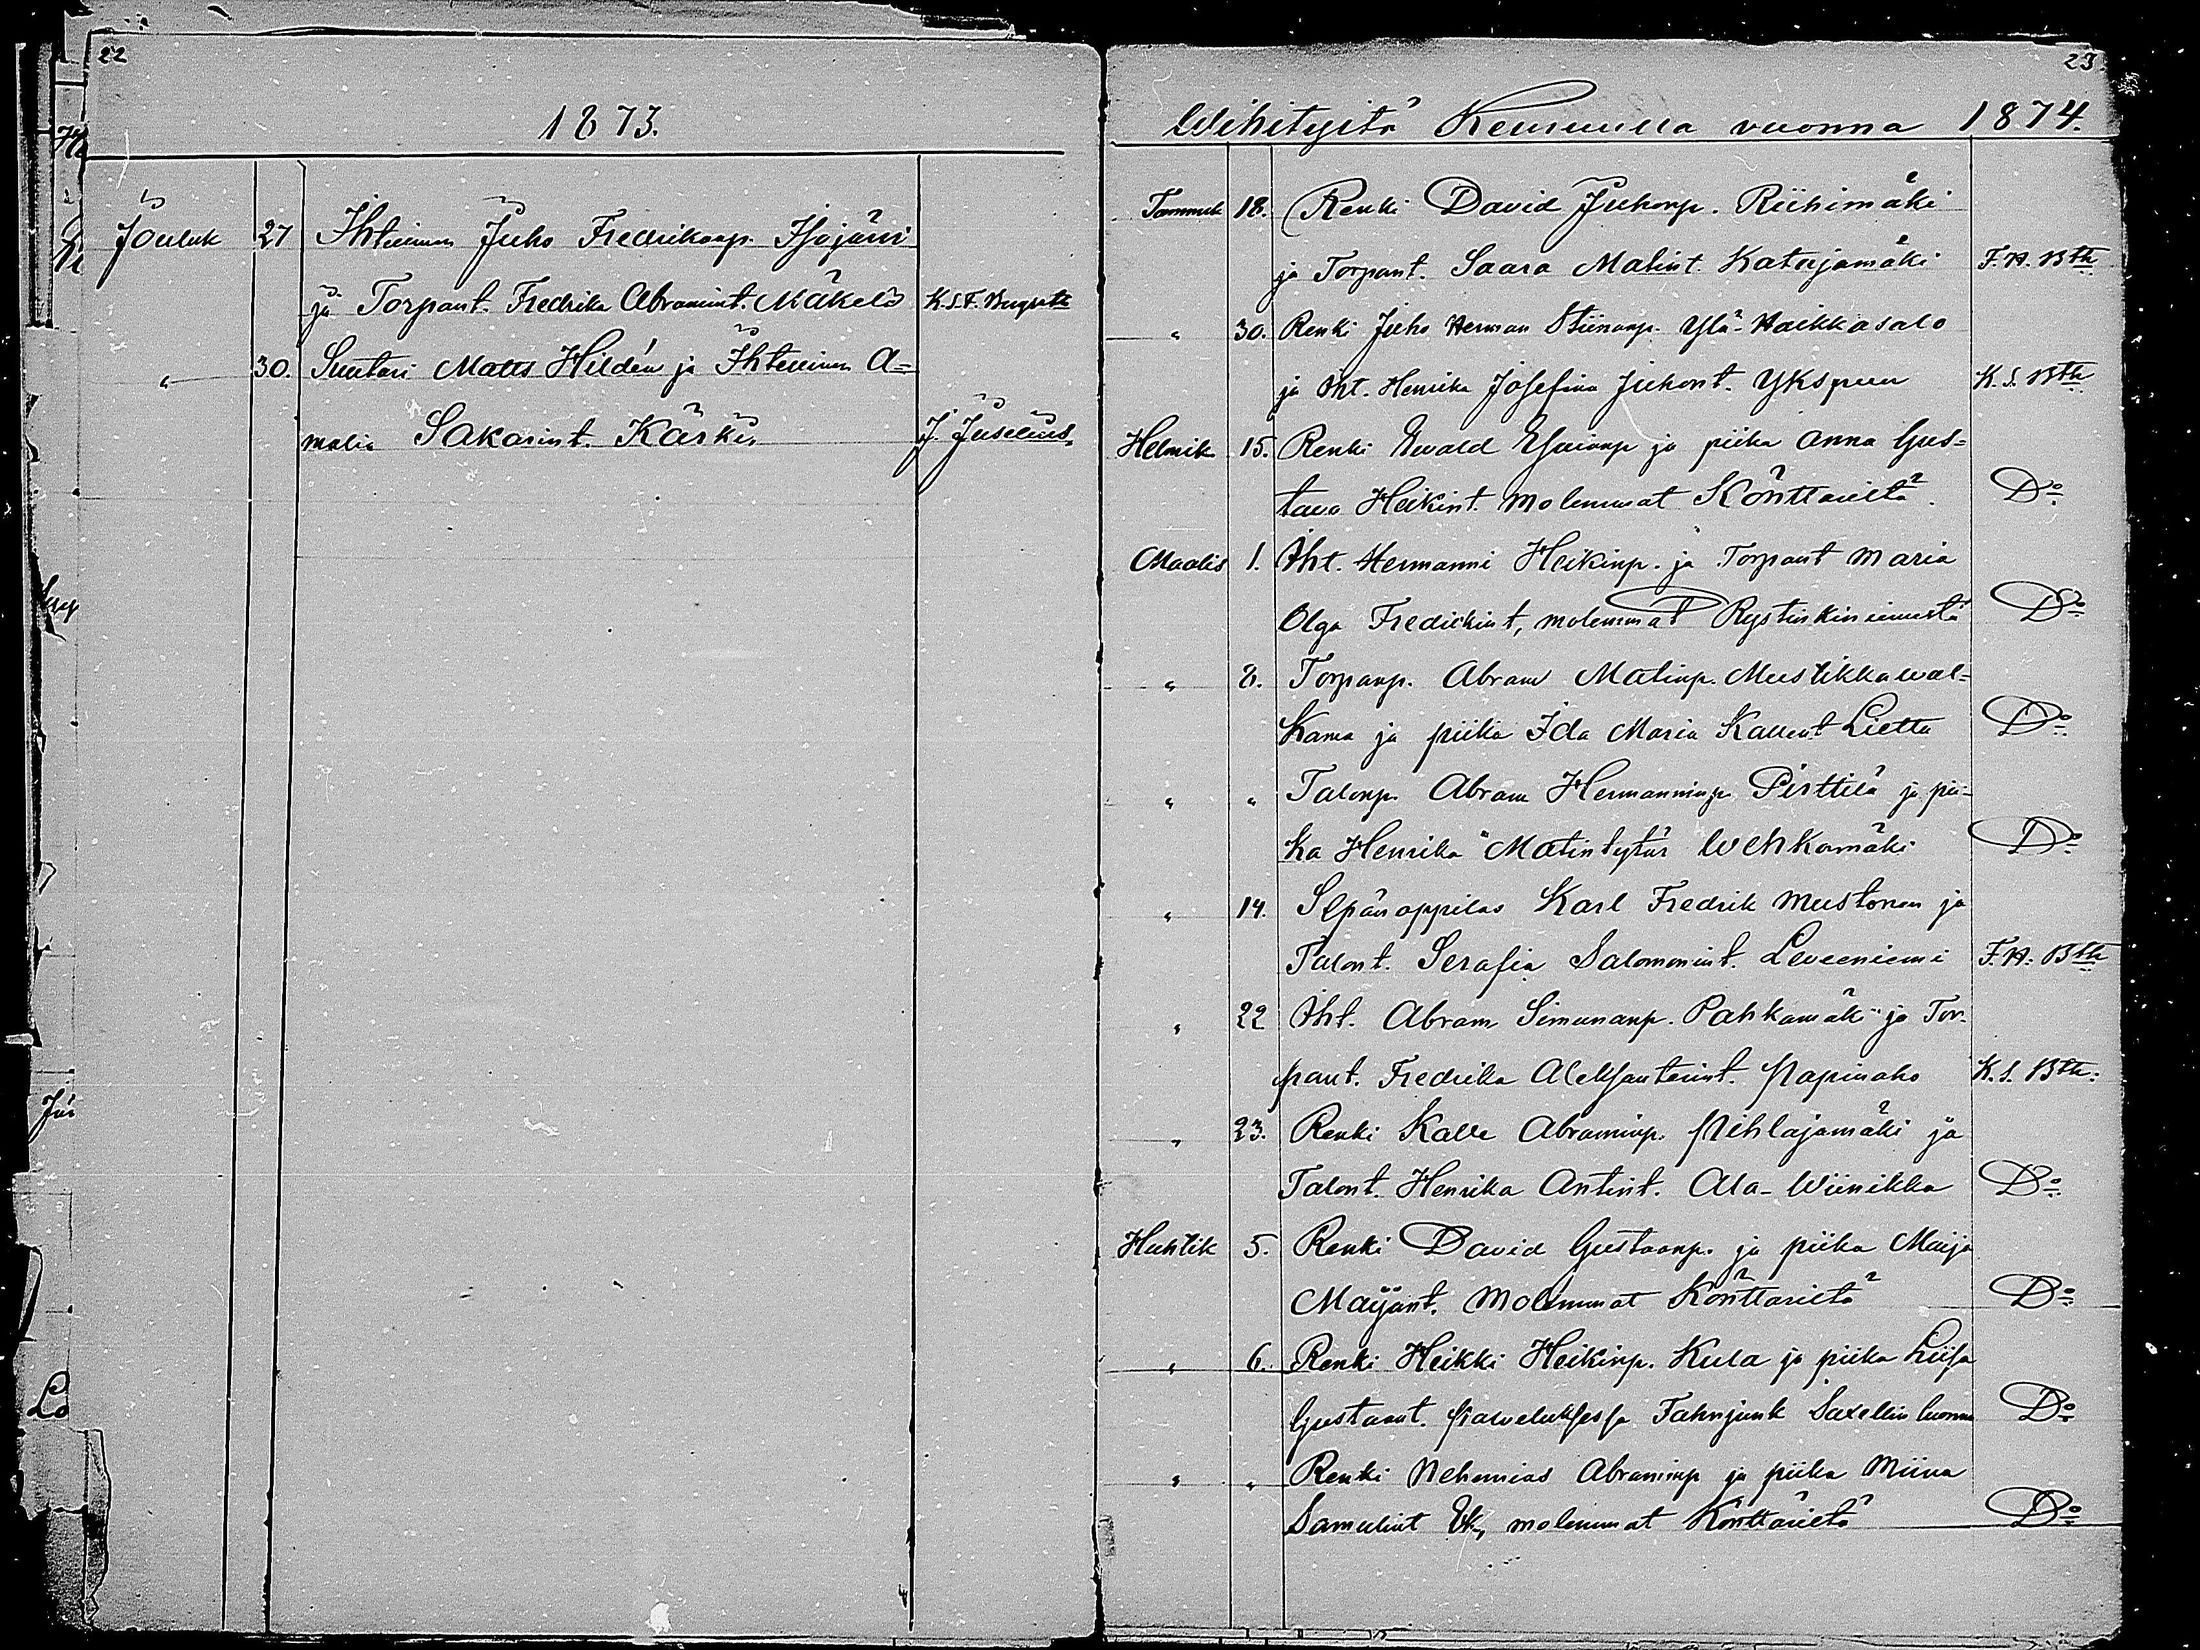 22
1873.
Jouluk 27 Ihtellinen Juho Fredrikanp. Isojärvi
ja Torpant. Fredrika Abramint. Mäkelä K.S.F. Bergroth
" 30. Suutari Matts Hildén ja Ihtellinen A=
malia Sakarint. Kärki, J. Juselius.
23.
Wihityitä Keuruulla vuonna 1874.
Tammik 18. Renki David Juhonp. Riihimäki
ja Torpant. Saara Matint. Katajamäki F.H. Bth
" 30. Renki Juho Herman Stiinanp. Ylä-Haikkasalo
ja Iht. Henrika Josefina Juhont. Ykspuu K.S. Bth
Helmik. 15. Renki Ewald Esaianp ja piika Anna Gus=
tava Heikint. molemmat Könttäriltä. Do
Maalis 1. Iht. Hermanni Heikinp. ja Torpant Maria
Olga Fredrikint, molemmat Rystinkiniemestä Do
" 8. Torpanp. Abram Matinp. Mustikkawal=
kama ja piika Ida Maria Kallent Lietta Do
" " Talonp. Abram Hermanninp. Pirttilä ja pii-
ka Henrika Matintytär Wehkamäki Do
" 14. Sepänoppilas Karl Fredrik Mustonen ja
Talont. Serafia Salomonint. Leveeniemi F.H. Bth
" 22 Iht. Abram Simunanp. Pahkamäki ja Tor-
pant. Fredrika Aleksanterint. Papinaho K.S. Bth.
" 23. Renki Kalle Abraminp. Pihlajamäki ja
Talont. Henrika Antint. Ala-Wiinikka Do
Huhtik 5. Renki David Gustaanp. ja piika Maija
Maijant. molemmat Könttäriltä Do
" 6. Renki Heikki Heikinp. Kula ja piika Liisa
Gustaant. palveluksessa Fahnjunk Saxellin luonna Do
" " Renki Nehemias Abraminp ja piika Miina
Samulint Ek, molemmat Könttäriltä Do